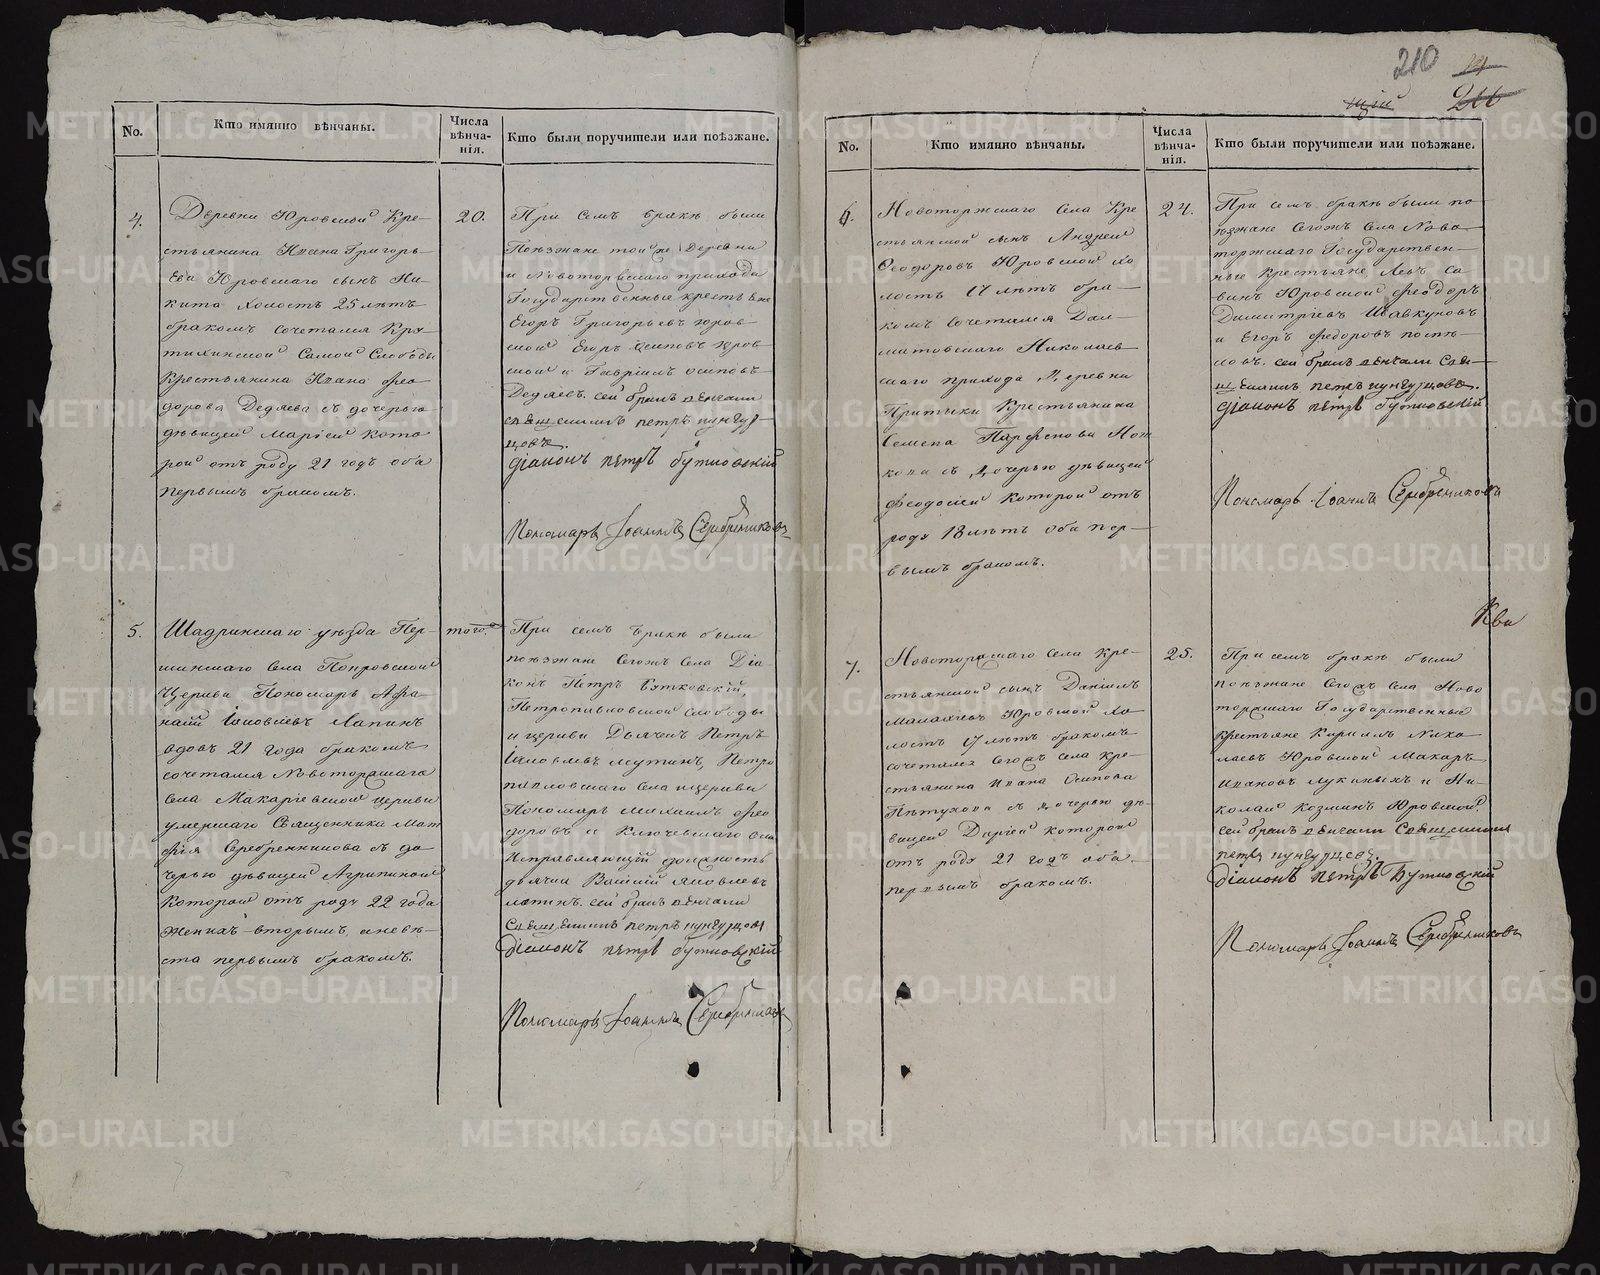 210
No.
Кто имянно вѣнчаны.
Числа вѣнча-нія.
Кто были поручители или поѣзжане.
4.
Деревни Юровской Кре-
стьянина Ивана Григорь-
ева Юровскаго сынъ Ни-
кита холостъ 25 лѣтъ
бракомъ сочетался Кру-
тихинской Самой Слободы
Крестьянина Ивана Фео-
дорова Дедяева съ дочерью
дѣвицей Маріей кото-
рой отъ роду 21 годъ оба
первымъ бракомъ.
20.
При семъ бракѣ были
Поѣзжане той же Деревни
и Новоторжскаго прихода
Государственные крестьяне
Егоръ Григорьевъ Юров-
ской Егоръ Осиповъ Юров-
ской и Гавріилъ Осиповъ
Дедяевъ. сей бракъ вѣнчали
священникъ петръ кунгур-
цовъ.
діаконъ пётръ бутковскій
Пономарь Іоаннъ Серебрениковъ
5.
Шадринскаго уѣзда Пер-
шинскаго Села Покровской
Церкви Пономарь Афа-
насій Іаковлевъ Лапинъ
вдовъ 21 года бракомъ
сочетался Новоторжскаго
Села Макаріевской церкви
умершаго Священника Мат
фія Серебренникова съ до-
черью дѣвицей Агрипиной
которой отъ роду 22 года
Женихъ вторымъ, а невѣ-
ста первымъ бракомъ.
того.
При семъ бракѣ были
поѣзжане Сегожъ Села Діа-
конъ Петръ Бутковскій,
Петропавловской слободы
и церкви Дьячекъ Петръ
Іаковлевъ Петро
павловскаго Села и церкви
Пономарь Михаилъ Фео
доровъ и Ключевскаго Села
Исправляющій должность
дьячка Василій Яковлевъ
сей бракъ вѣнчали
Священникъ петръ кунгурцовъ
діаконъ пётръ бутковскій
Пономарь Іоаннъ Серебрениковъ
No.
Кто имянно вѣнчаны.
Числа вѣнча-нія.
Кто были поручители или поѣзжане.
6.
Новоторжскаго Села Кре
стьянской сынъ Андрей
Феодоровъ Юровской хо
лостъ 17 лѣтъ бра-
комъ Сочетался Дал-
матовскаго Николаев-
скаго прихода Деревни
Притыки Крестьянина
Семена Парфенова
съ Дочерью дѣвицей
Феодосіей которой отъ
роду 18 лѣтъ оба пер-
вымъ бракомъ.
24.
При семъ бракѣ были по
ѣзжане Сегожъ Села Ново
торжскаго Государствен-
ные Крестьяне Левъ Са
винъ Юровской Феодоръ
Димитріевъ Шавкуновъ
и Егоръ Федоровъ Поспѣ-
ловъ. сей бракъ вѣнчали Свя-
щенникъ петръ кунгурцовъ.
діаконъ пётръ бутковскій
Пономарь Іоаннъ Серебрениковъ
7.
Новоторжскаго Села Кре-
стьянской сынъ Даніилъ
Малахіевъ Юровской Хо
лостъ 17 лѣтъ бракомъ
сочетался Сегожъ села Кре-
стьянина Ивана Осипова
Пѣтухова съ дочерью дѣ-
вицей Даріей которой
отъ роду 21 годъ оба
первымъ бракомъ.
25.
При семъ бракѣ были
поѣзжане Сегожъ Села Ново
торжскаго Государственные
Крестьяне Кириллъ Нико
лаевъ Юровской Макаръ
Ивановъ Лукиныхъ и Ни-
колай Козминъ Юровской.
сей бракъ вѣнчали Священникъ
петръ кунгурцовъ.
діаконъ пётръ Бутковскій
Пономарь Іоаннъ Серебрениковъ
METRIKI.GASO-URAL.RU